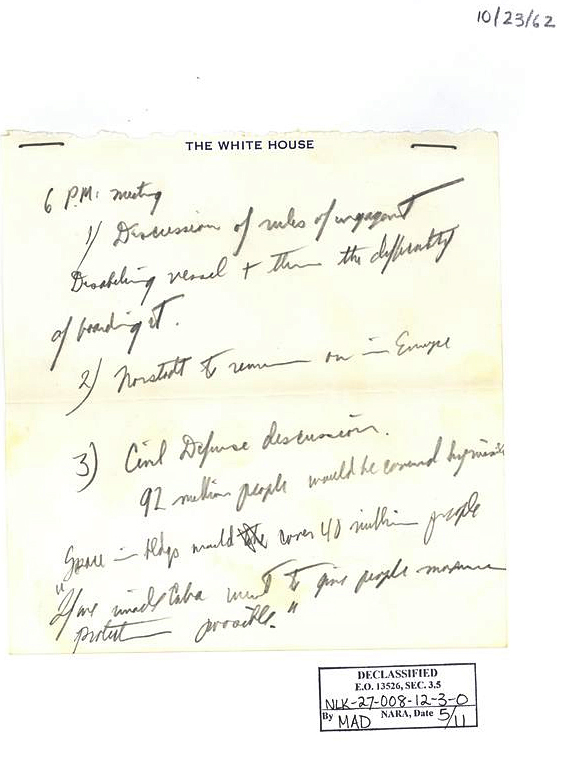 10/23/62
THE WHITE HOUSE
6 P.M. meeting
1) Discussion of rules of engagement
Disabling vessel + then the difficulty
of boarding it.
2) Norstadt to remain on in Europe
3) Civil Defense discussion.
92 million people would be covered by missiles
Space in bldgs would cover 40 million people
"If we invade Cuba want to give people maximum
protection possible."
DECLASSIFIED
E.O. 13526, SEC. 3.5
NLK-27-008-12-3-0
By MAD NARA, Date 5/11